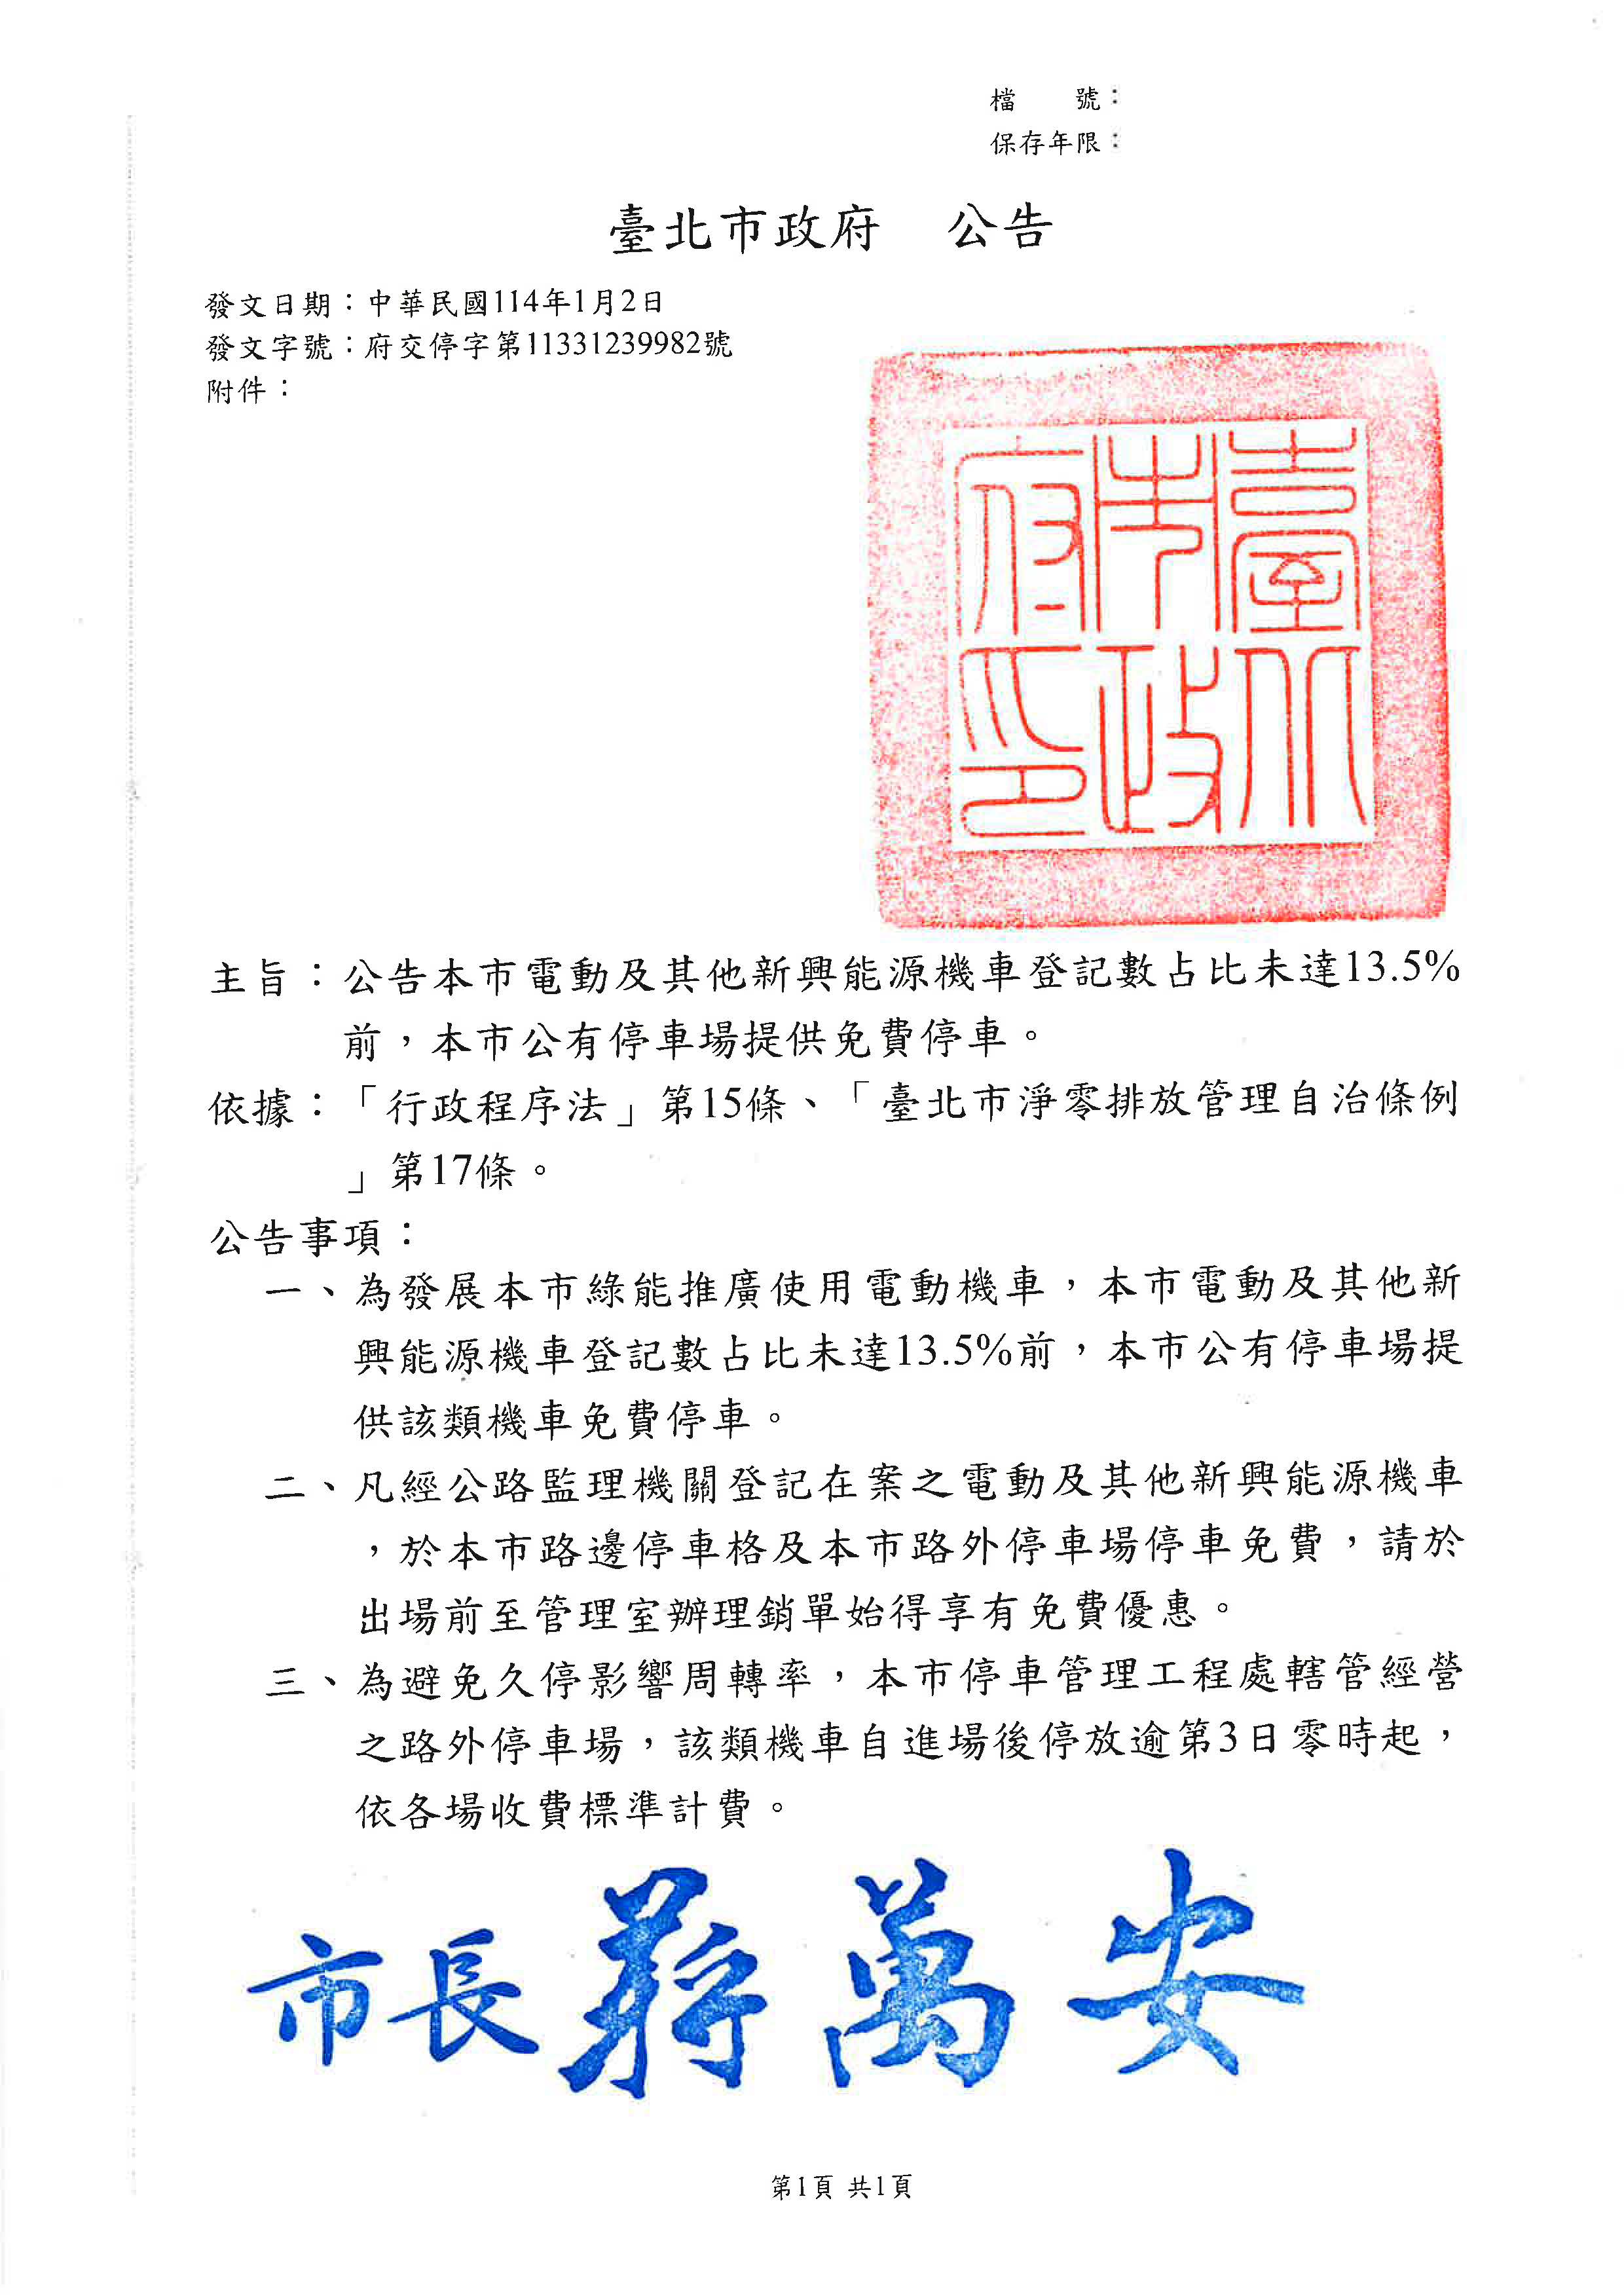 檔　　號：
保存年限：
臺北市政府　公告
發文日期：中華民國114年1月2日
發文字號：府交停字第11331239982號
附件：
臺北市政府印
主旨：公告本市電動及其他新興能源機車登記數占比未達13.5%
前，本市公有停車場提供免費停車。
依據：「行政程序法」第15條、「臺北市淨零排放管理自治條例
」第17條。
公告事項：
一、為發展本市綠能推廣使用電動機車，本市電動及其他新
興能源機車登記數占比未達13.5%前，本市公有停車場提
供該類機車免費停車。
二、凡經公路監理機關登記在案之電動及其他新興能源機車
，於本市路邊停車格及本市路外停車場停車免費，請於
出場前至管理室辦理銷單始得享有免費優惠。
三、為避免久停影響周轉率，本市停車管理工程處轄管經營
之路外停車場，該類機車自進場後停放逾第3日零時起，
依各場收費標準計費。
市長蔣萬安
第1頁 共1頁